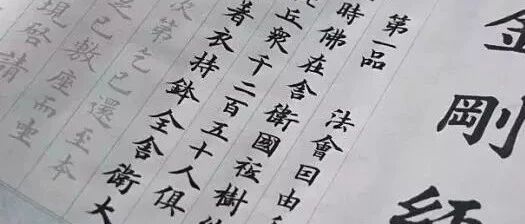 金剛經
第一品 法會因由
時佛在舍衛國祇樹
丘眾千二百五十人俱
著衣持鉢全舍衛大
次第乞已還至本
足已敷座而坐
現啓請